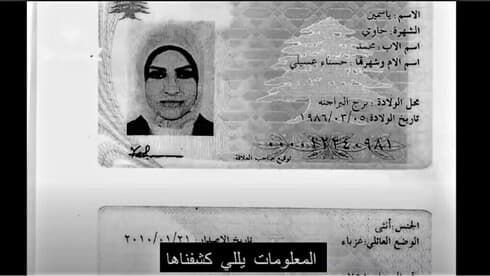 الاسم: ياسمين
الشهرة: حاوي
اسم الاب: محمد
اسم الام وشهرتها: حسناء عسيلي
محل الولادة: برج البراجنه
تاريخ الولادة: ١٩٨٦/٠٣/٠٥
توقيع صاحب العلاقة
الجنس: أنثى
الوضع العائلي: عزباء
تاريخ الاصدار: ٢٠١٠/٠١/٢١
المعلومات يللي كشفناها